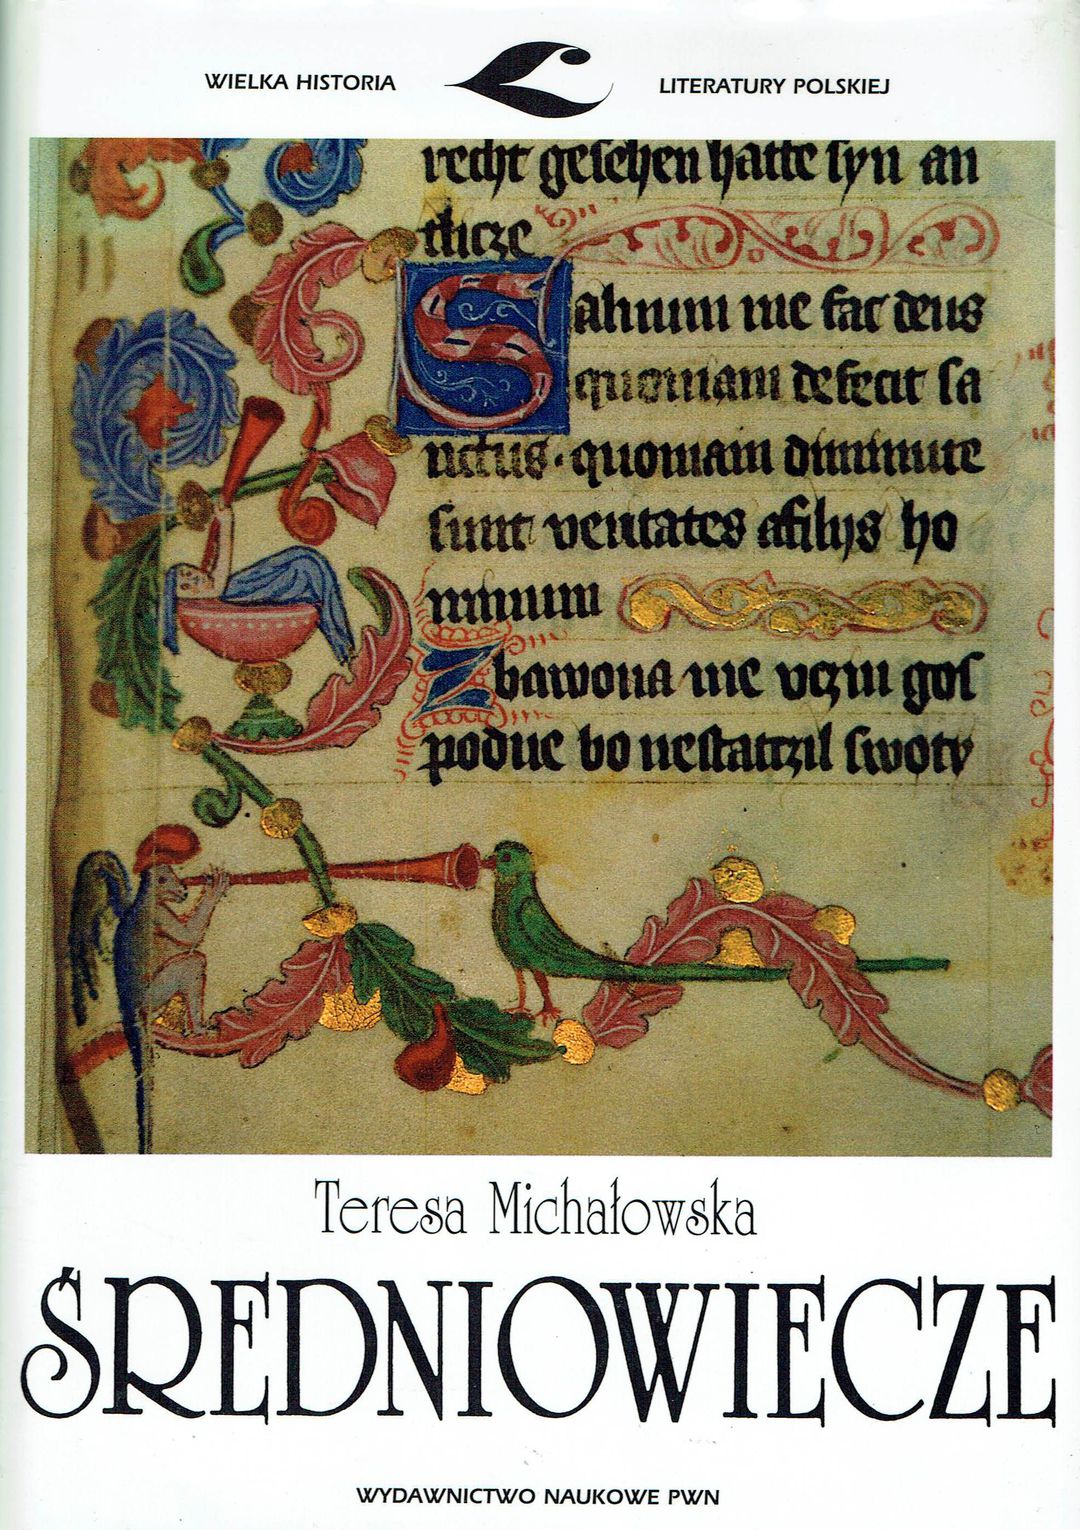 WIELKA HISTORIA
LITERATURY POLSKIEJ
recht gesehen hatte syn an
tlicze
Saluum me fac deus
quoniam defecit sa
nctus · quoniam diminute
sunt veritates afilijs ho
minum
Zbawona me vczin gos
podne bo nestatczil swoty
Teresa Michałowska
ŚREDNIOWIECZE
WYDAWNICTWO NAUKOWE PWN